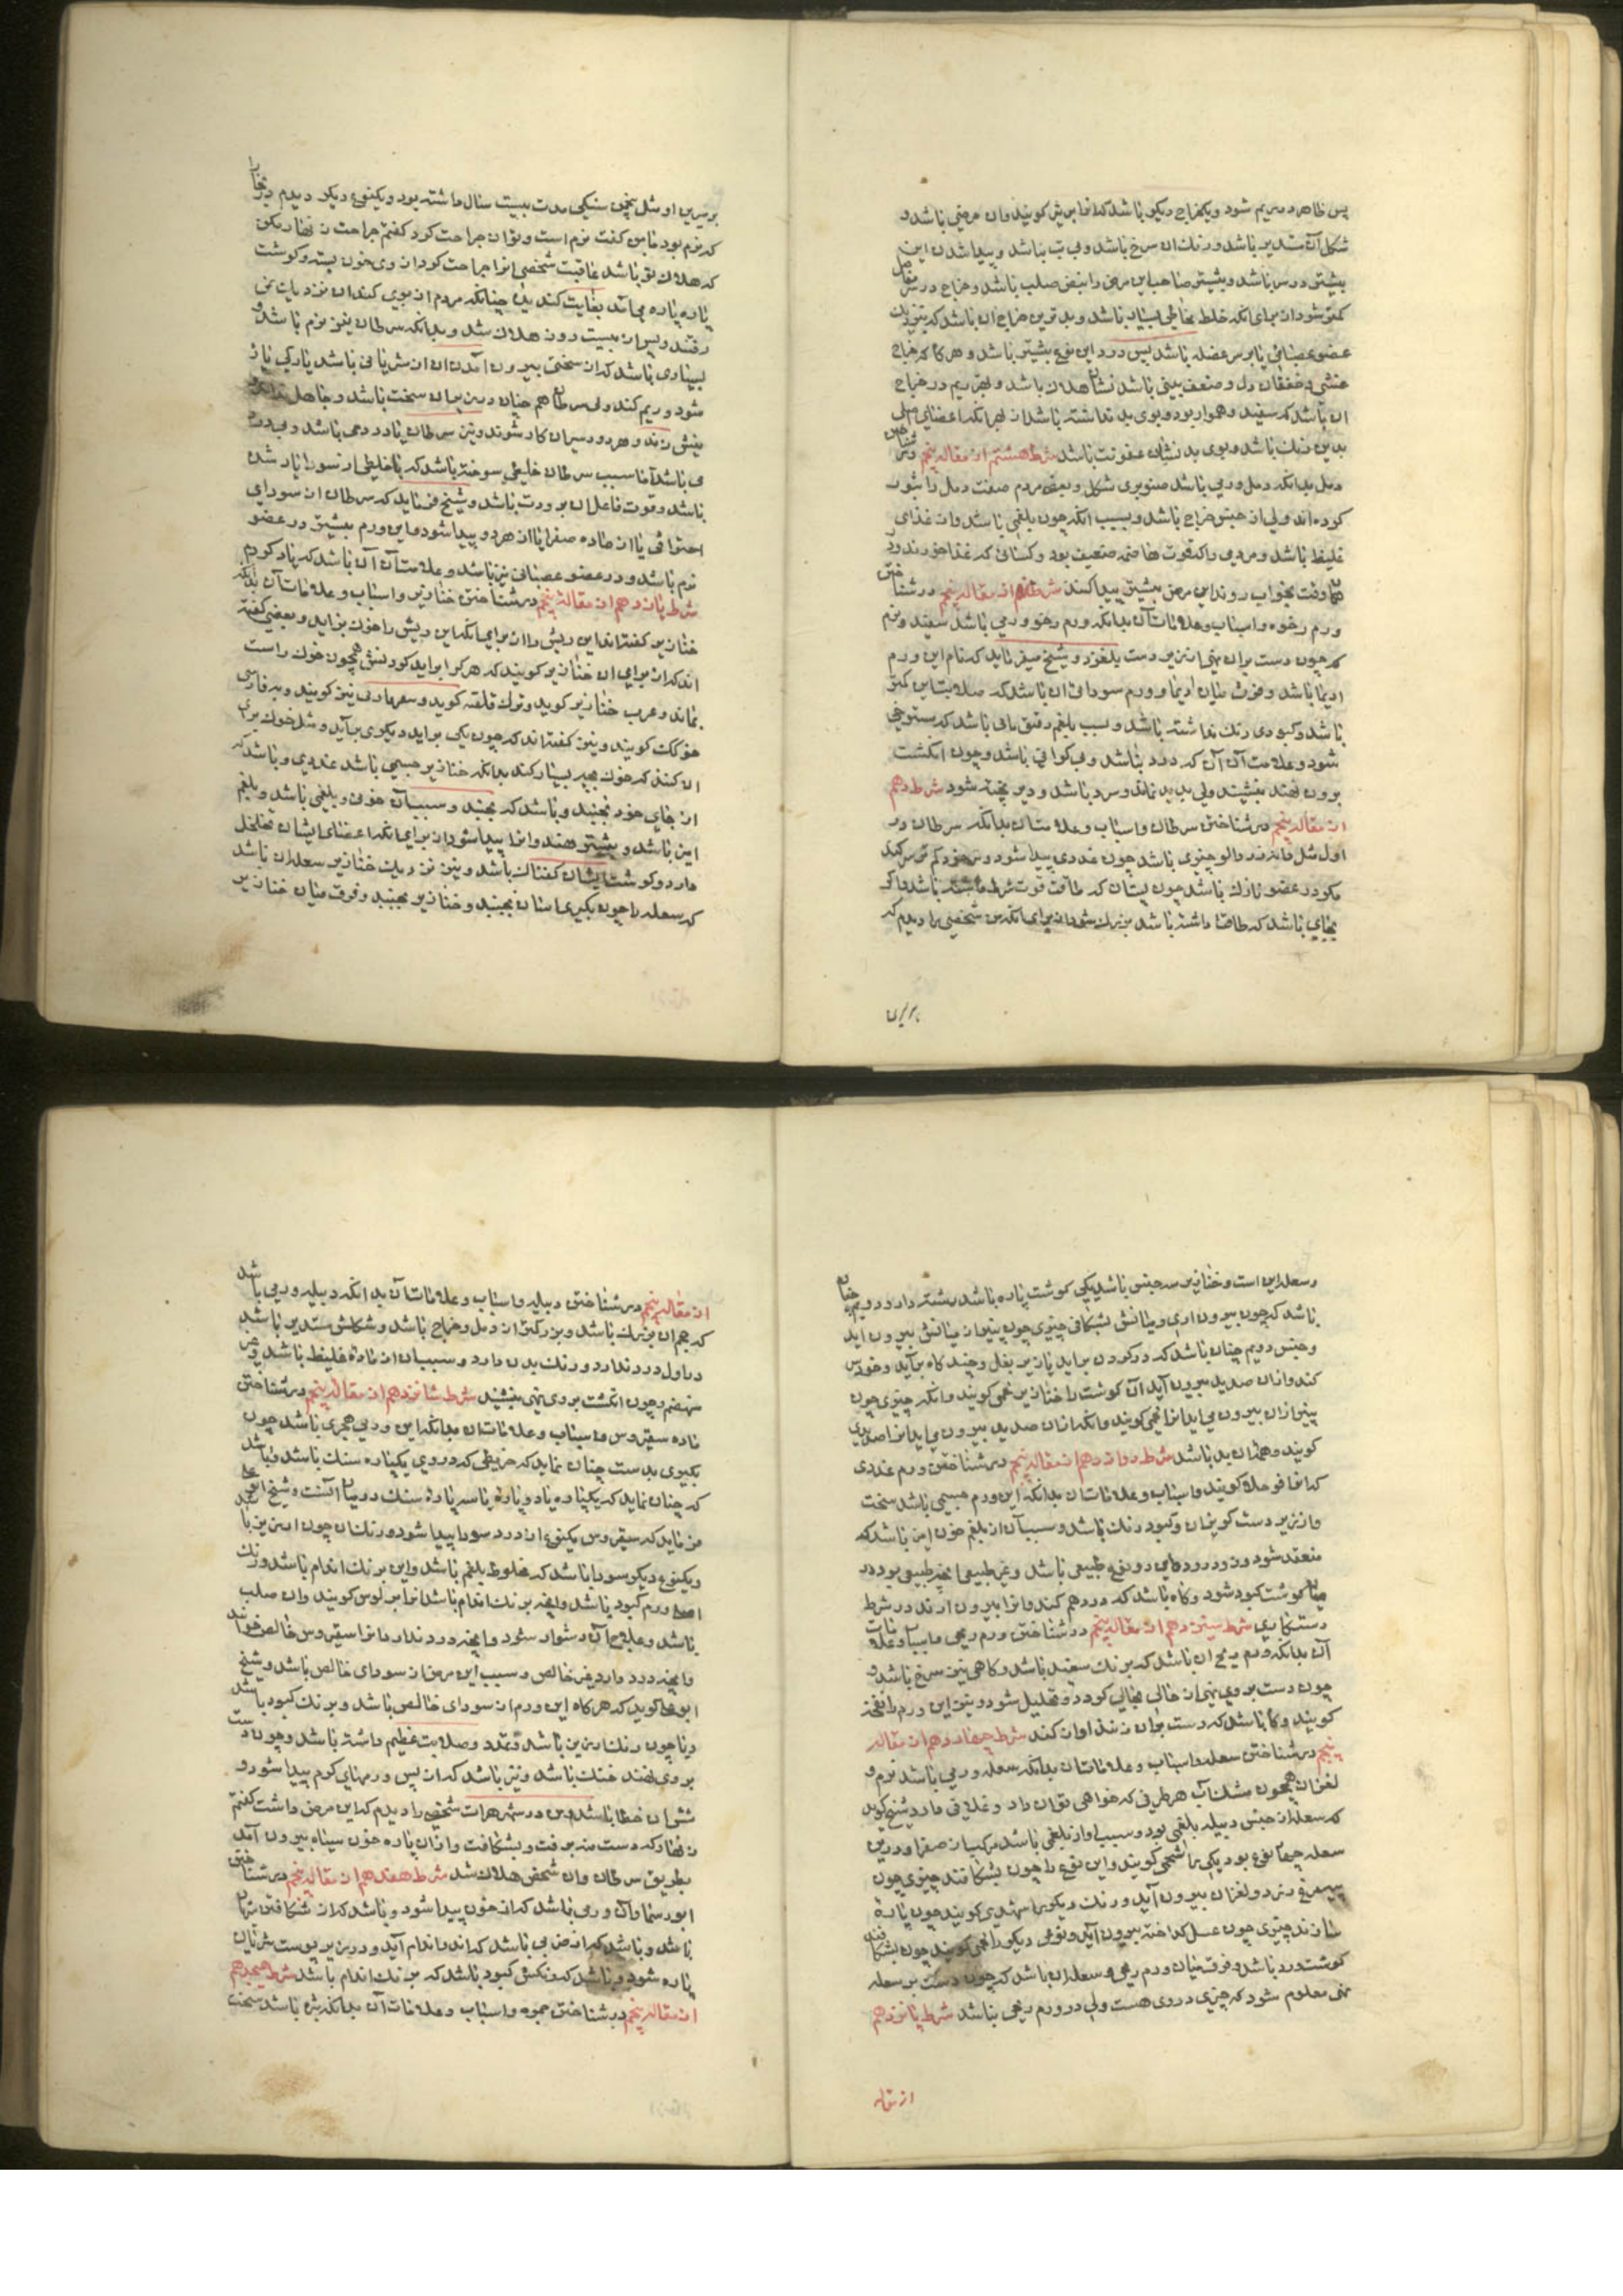 پس ظاهر در ریم شود و یکخراج دیکر باشد که انرا بریش کویند و ان مرضی باشد و
شکل آن مستدیر باشد و رنك ان سرخ باشد و بی تب نباشد و پیدا شدن این
بیشتر در سر باشد و بیشتر صاحب این مرض را نبض صلب باشد و خراج در سر مفاصل
کمتر شود از برای انکه خلط مخاطی بسیار باشد و بدترین خراج ان باشد که بنزدیك
عضو عصبانی یا بر سر عضله باشد پس درد این نوع بیشتر باشد و هر کاه که خراج
غشی و خفقان دل و ضعف بینی باشد نشان هلاك باشد و بهترین ریم در خراج
ان باشد که سفید و هموار بود و بوی بد نداشته باشد از بهر انکه اعضای اصلی
بدین رنك باشد و بوی بد نشان عفونت باشد شرط هشتم از مقاله پنجم در شناختن
دمل بدانکه دمل ورمی باشد صنوبری شکل و بعضی مردم صفت دمل را بثور
کرده اند ولی از جنس خراج باشد و بسبب انکه خون بلغمی باشد و از غذای
غلیظ باشد و مردمی را که قوت هاضمه ضعیف بود و کسانی که غذا خورند و در
وقت بخواب روند این مرض بیشتر پیدا کنند شرط نهم از مقاله پنجم در شناختن
ورم رخوه و اسباب و علامات آن بدانکه ورم رخو ورمی باشد سفید و نرم
که چون دست بران نهی از زیر دست بلغزد و شیخ میفرماید که نام این ورم
اذیما باشد و فرق میان اذیما و ورم سودائی ان باشد که صلابتش این کمتر
باشد و کبودی رنك نداشته باشد و سبب بلغم رقیق مائی باشد که بستوخی
شود و علامت آن آن که درد نباشد و بی کرانی باشد و چون انکشت
برون نهند بنشیند ولی پدید نماند و سرد باشد و دیر پخته شود شرط دهم
از مقاله پنجم در شناختن سرطان و اسباب و علامات ان بدانکه سرطان در
اول مثل دانه زردالو چیزی باشد چون غددی پیدا شود و سرخود کم نرم کند
مکر در عضو نازك باشد چون پستان که طاقت قوت شرط نداشته باشد و اکر
بجای باشد که طاقت داشته باشد بزرك شود از برای انکه من شخصی را دیدم که
بر سرین او مثل پختهٔ سنکی مدت بیست سال داشته بود و یکنوع دیکر دیدم در بخارا
که نرم بود مابین کفت نرم است و توان جراحت کرد کفتم جراحت زنهار مکن
که هلاك تو باشد عاقبت شخصی انرا جراحت کرد از وی خون بسته و کوشت
پاره پاره می آمد بغایت کنده بد چنانکه مردم از بوی کند ان نزدیك نمی
رفتند و پس از بیست روز هلاك شد و بدانکه سرطان نیز نرم باشد و
بسیاری باشد که از سختی بیرون آمدن ان از شریانی باشد یا رکی پاره
شود و ریم کند ولی سرطان هم چنان در زیر ان سخت باشد و جاهل نداند که
نیش زند و هر دو دران کار شوند و نیز سرطان با درد می باشد و بی درد
می باشد اما سبب سرطان خلطی سوخته باشد که باخلطی از سودا یار شده
باشد و قوت فاعل ان برودت باشد و شیخ میفرماید که سرطان از سودای
احتراقی یا از ماده صفرا یا از هر دو پیدا شود و این ورم بیشتر در عضو
نرم باشد و در عضو عصبانی نیز باشد و علامت آن آن باشد که یاد کردم
شرط یازدهم از مقاله پنجم در شناختن خنازیر و اسباب و علامات آن بدانکه
خنازیر کفته اند این ریش را از برای انکه این ریش را خوك بزاید و بعضی کفته
اند که از برای ان خنازیر کویند که هر کرا براید کردنش همچون خوك راست
بماند و عرب خنازیر کوید و ترك قلقنه کوید و سعرمادی نیز کویند و بفارسی
خوکك کویند و نیز کفته اند که چون یکی براید دیکری برآید و مثل خوك برای
ان کنند که خوك بچه بسیار کند بدانکه خنازیر جسمی باشد غددی و باشد که
از جای خود نجنبد و باشد که بجنبد و سبب آن خونی و بلغمی باشد و بلغم
این باشد و بیشتر هند وانرا پیدا شود از برای انکه اعضای ایشان متخلخل
دارد و کوشت ایشان کفتناك باشد و نیز نزدیك خنازیر سعله ان باشد
که سعله را چون بکیری اسان بجنبد و خنازیر نجنبد و فرق میان خنازیر
و سعله این است و خنازیر سه جنس باشد یکی کوشت پاره باشد رشته دارد دویم چنان
باشد که چون بیرون اری و میانش بشکافی چیزی چون پنیر از میانش بیرون اید
و جنس دویم چنان باشد که در کردن براید یا زیر بغل و چند کاه برآید و خود سر
کند و از ان صدید بیرون آید آن کوشت را خنازیر لحمی کویند و انکه چیزی چون
پنیر از ان بیرون می اید انرا شحمی کویند و انکه از ان صدید بیرون می اید انرا صدیدی
کویند و همه ان بد باشد شرط دوازدهم از مقاله پنجم در شناختن ورم غددی
که انرا فوجلا کویند و اسباب و علامات ان بدانکه این ورم جسمی باشد سخت
و از زیر دست کریزان و کبود رنك باشد و سبب آن از بلغم خون امیز باشد که
منعقد شود و در دو نوع طبیعی باشد و غیر طبیعی انچه طبیعی بود در
میان کوشت کبود شود و کاه باشد که درد هم کند و انرا بیرون ارند در شرط
دستکاری شرط سیزدهم از مقاله پنجم در شناختن ورم ریحی و اسباب و علامات
آن بدانکه ورم ریحی ان باشد که برنك سفید باشد و کاهی نیز سرخ باشد و
چون دست بروی نهی از حالی بحالی کردد و تحلیل شود و نیز این ورم را نفخه
کویند و کاه باشد که دست بران زنند اواز کند شرط چهاردهم از مقاله
پنجم در شناختن سعله و اسباب و علامات ان بدانکه سعله ورمی باشد نرم و
لغزان همچون مشك آب هر طرفی که خواهی توان داد و غلافی دارد و شیخ کوید
که سعله از جنس دبیله بلغمی بود و سبب او از بلغمی باشد مرکب از صفرا و درین
سعله چهار نوع بود یکی را شحمی کویند و این نوع را چون بشکافند چیزی چون
پیه مرغ زرد و لغزان بیرون آید و رنك دیکر را شهدی کویند چون پاره
سازند چیزی چون عسل کداخته بیرون آید و نوعی دیکر را لحمی کویند چون بشکافند
کوشت زرد باشد و فرق میان ورم ریحی و سعله ان باشد که چون دست بر سعله
نهی معلوم شود که چیزی در وی هست ولی در ورم ریحی نباشد شرط پانزدهم
از مقاله
از مقاله پنجم در شناختن دبیله و اسباب و علامات آن بدانکه دبیله ورمی باشد
که حجم ان بزرك باشد و بزرکتر از دمل و خراج باشد و شکلش مستدیر باشد
در اول درد ندارد و رنك بدن دارد و سبب ان از ماده غلیظ باشد و غیر
منهضم و چون انکشت بروی نهی بنشیند شرط شانزدهم از مقاله پنجم در شناختن
ماده سقیروس و اسباب و علامات ان بدانکه این ورمی حجری باشد چون
بکیری بدست چنان نماید که خریطهٔ که در وی یکپاره سنك باشد و باشد
که چنان نماید که یکپاره یا دو پاره یا سه پاره سنك در میان آنست و شیخ
میفرماید که سقیروس یکنوع از درد سودا پیدا شود و رنك ان چون ارزیز باشد
و یکنوع دیکر سودا باشد که مخلوط بلغم باشد و این برنك اندام باشد و رنك
ورم کبود باشد و انچه برنك اندام باشد انرا بر لوس کویند و ان صلب
باشد و علاج آن دشوار شود و انچه درد ندارد انرا سقیروس خالص خوانند
و انچه درد دارد غیر خالص و سبب این مرض از سودای خالص باشد و شیخ
ابوعلی کوید که هر کاه این ورم از سودای خالص باشد و برنك کبود باشد
و یا چون رنك ارزیز باشد و تمدد و صلابت عظیم داشته باشد و چون دست
بروی نهند خنك باشد و نیز باشد که از پس ورمهای کرم پیدا شود و
شق ان خطا باشد و من در شهر هرات شخصی را دیدم که این مرض داشت کفتم
زنهار که دست مزن برفت و بشکافت و از ان پاره خون سیاه بیرون آمد
بطریق سرطان و ان شخص هلاك شد شرط هفدهم از مقاله پنجم در شناختن
ابورسما و آن ورمی باشد که از خون پیدا شود و باشد که از شکافتن شریان
باشد و باشد که از ضربی باشد که اند واندام آید و در زیر پوست شریان
پاره شود و باشد که رنکش کبود باشد که برنك اندام باشد شرط هجدهم
از مقاله پنجم در شناختن جمره و اسباب و علامات آن بدانکه بثره باشد سخت